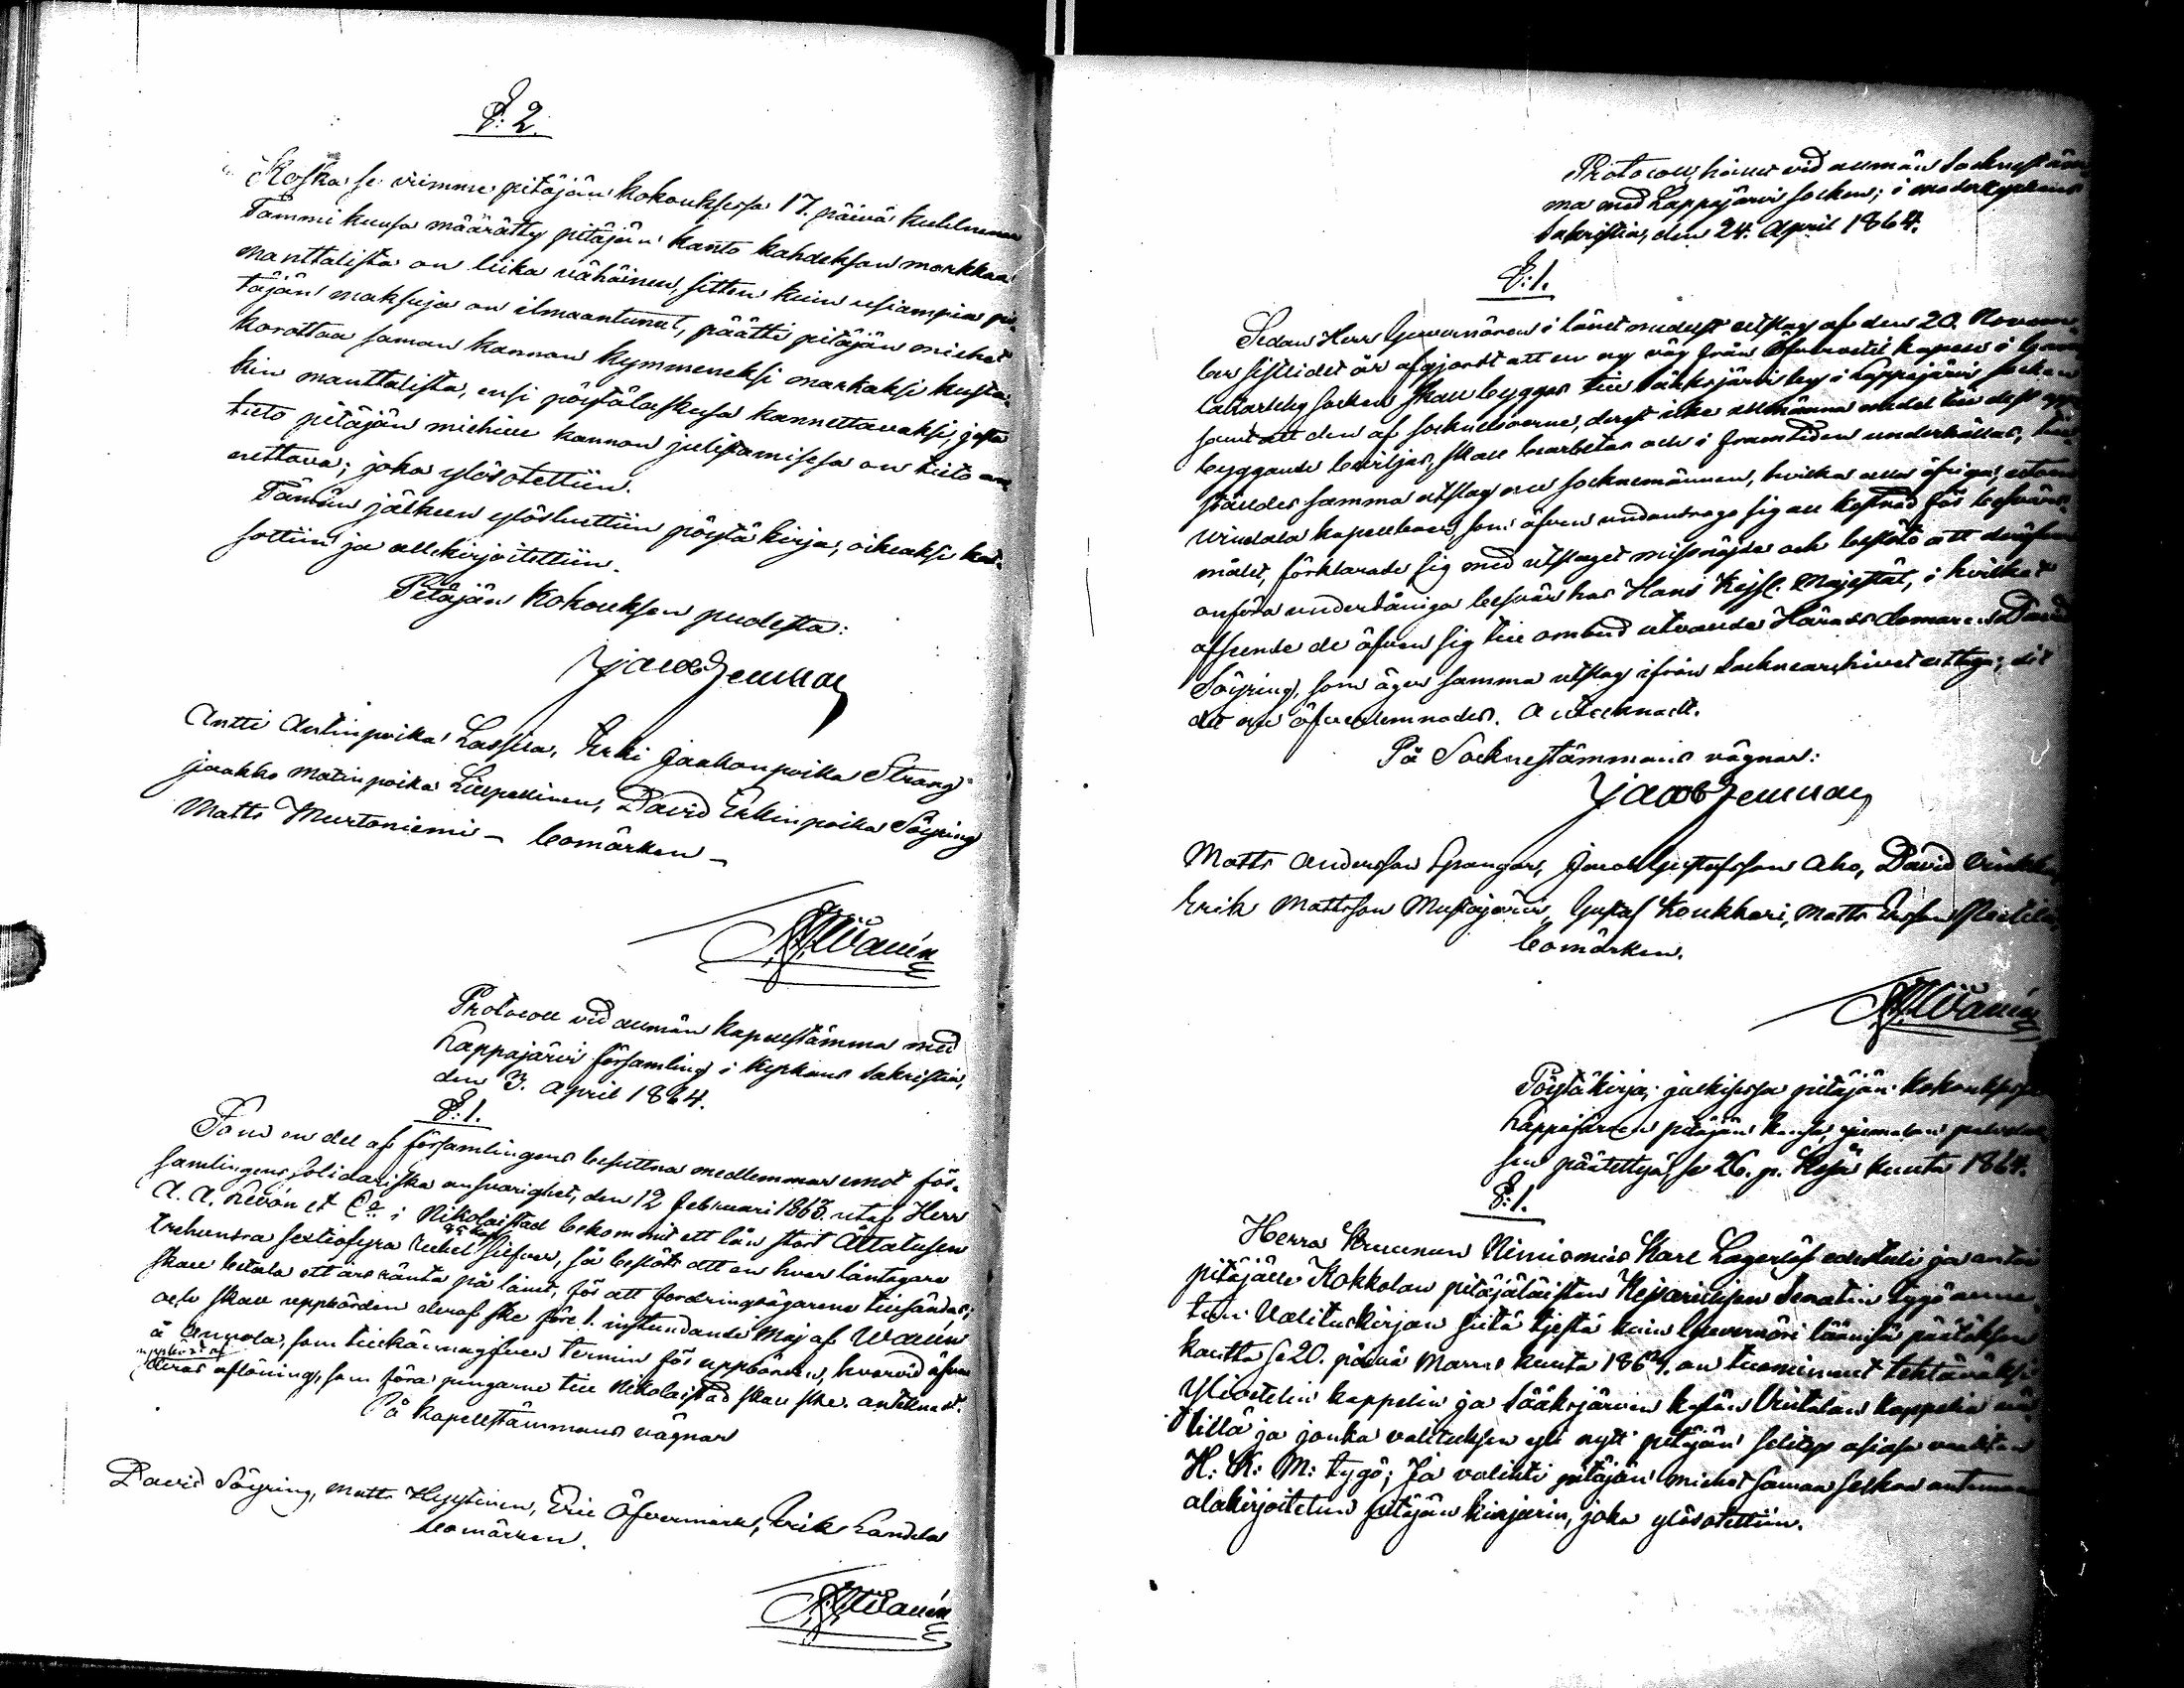 §: 2.
Koska se viimme pitäjän kokouksessa 17. päivä kuluneena
Tammi kuusa määrätty pitäjän kanto kahdeksan markkaa
manttalista on liika vähäinen, sitten kuin usiampia pi-
täjän maksuja on ilmaantunut, päätti pitäjän miehet
korottaa saman kannon kymmeneksi markaksi kusta-
kin manttalista, ensi pöytälaskusa kannettavaksi, josta
tieto pitäjän miehille kannon julistamisesa on tieto an-
nettava; joka ylösotettiin.
Tämän jälkeen ylösluettiin pöytäkirja, oikiaksi kat-
sottiin ja allekirjoitettiin.
Pitäjän Kokouksen puolesta:
Antti Antinpoika Lassila, Erkki Jaakonpoika Strang
Jaakko Matinpoika Liespellinen, David Erkinpoika Söyring
Matts Murtoniemi – bomärken –
Protocoll vid allmän kapellstämma med
Lappajärvi församling i kyrkans Sakristia,
den 3. April 1864.
§: 1.
Som en del af församlingens besuttna medlemmar emot för-
samlingens solidariska ansvarighet, den 12 Februari 1863 utaf Herr
A. A. Levón et Co. i Nikolaistad bekommit ett lån stort Åttatusen
trehundra sextiofyra rubel silfver, så beslöts att en hvar låntagare
skall betala ett års ränta på lånet, för att fordringsägarene tillsändas;
och skall uppbörden deraf ske före 1. instundande Maj af Wanén
å Annola, som tillkännagifver termin för uppbörden, hvarvid äfven
deras aflöning, som föra pengarne till Nikolaistad skall ske. antecknadt.
På Kapellstämmans vägnar
David Söyring, Matts Hyytinen, Eric Öfvermark, Erik Landela
bomärken.
Protocoll, hållet vid allmän Sockenstäm-
ma med Lappajärvi socken; i moderkyrkans
Sakristia, den 24. April 1864.
§: 1.
Sedan Herr Guvernören i länet medelst utslag af den 20. Novem-
ber sistlidet år afgjordt att en ny väg från Öfvervetil kapell i Gam
lakarleby socken skall byggas till Sääksjärvi by i Lappajärvi socken
samt att den af socknboerne, derest icke allmänna medel till dess upp-
byggande beviljas, skall bearbetas och i framtiden underhållas,
samma utslag sockenemännen, hvilka alla öfriga, utom
Windala kapellboer, som äfven undandrogo sig all kostnad för besvärs-
målet, förklarade sig med utslaget missnöjde och beslöto att deröfver
anföra underdåniga besvär hos Hans Kejserl. Majestät, i hvilket
afseende de äfven sig till ombud utvalde Häradsdomaren David
Söyring, som äger samma utslag ifrån Sockenearchivet uttaga; dit
det nu öfverlemnades. Antecknadt.
På Sockenstämmans vägnar:
Matts Andersson Spangar, Jacob Gustafsson Aho, David
Erik Mattsson Mustajärvi, Gustaf Koukkari, Matts Ersson
bomärken.
Pöytäkirja, julkisessa pitäjän kokouksessa
Lappajärven pitäjän kansa, jumalan palveluk-
sen päätettyä, se 26. p. Kesä kuuta 1864.
§: 1.
Herra Kruunun Nimismies Karl Lagerlöf edestuli ja antoi
pitäjälle Kokkolan pitäjäläisten Keisarillisen Senatin tygö anne-
tun Valituskirjan siitä tiestä kuin Guvernöri läänisä päätöksen
kautta se 20. päivä Marras kuuta 1863. on tuominnut tehtäväksi
Ylivetelin kappelin ja Sääksjärven kylän Vintalan kappelin vä-
lillä ja jonka valituksen yli nyt pitäjän selitys asiasa vaaditaan
H: K: M: tygö; Ja valitsi pitäjän miehet saman selkon antamaan
alakirjoitetun pitäjän kirjurin, joka ylösotettiin.